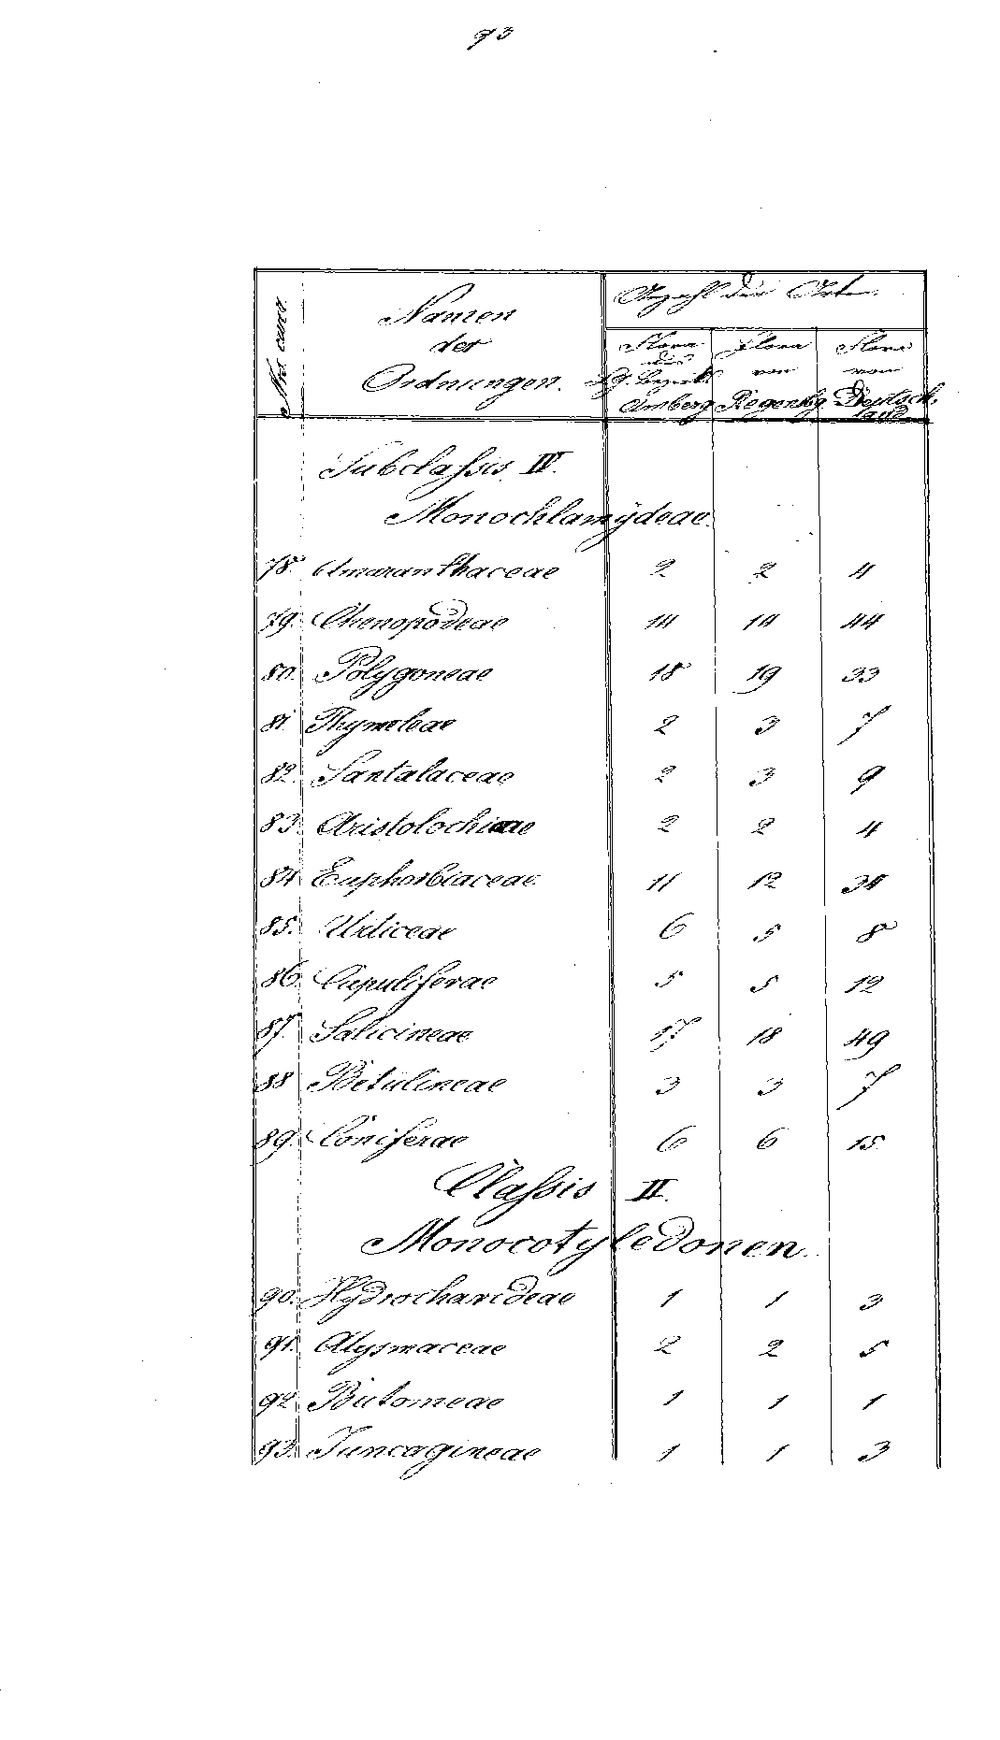 93
Nro curr.
Namen
der
Ordnungen.
Anzahl der Arten.
Flora
des
Ldg. Bezirks
Amberg
Flora
von
Regensbg.
Flora
von
Deutsch
land
Subclassis IV.
Monochlamÿdeae.
78. Amaranthaceae 2 2 4
79. Chenopodeae 14 14 44
80. Polygoneae 18 19 33
81. Thymeleae 2 3 7
82. Santalaceae 2 3 9
83. Aristolochieae 2 2 4
84. Euphorbiaceae. 11 12 34
85. Urticeae 6 5 8
86. Cupuliferae 5 5 12
87. Salicineae 17 18 49
88 Betulineae 3 3 7
89. Coniferae 6 6 15.
Classis II.
Monocotyledonen.
90. Hydrocharideae 1 1 3
91. Alysmaceae 2 2 5
92. Butomeae 1 1 1
93. Juncagineae 1 1 3